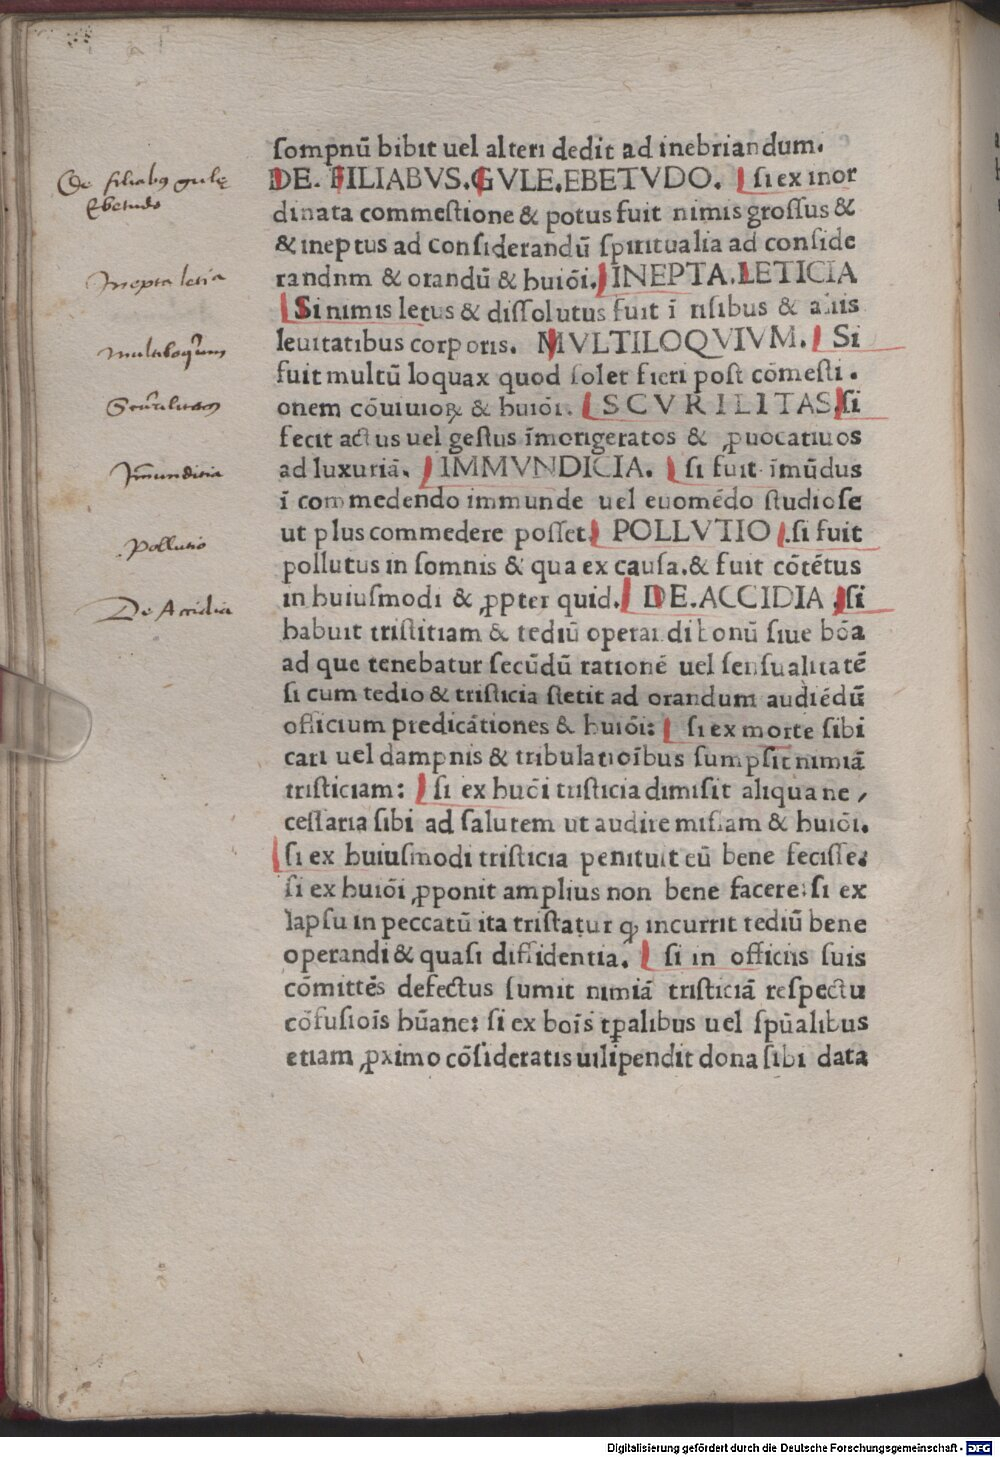 ſompnū bibit uel alteri dedit ad inebriandum.
De filiabus gulę
DE. FILIABVS. GVLE. EBETVDO. ſi ex inor
Ebetudo
dinata commeſtione & potus fuit nimis groſſus &
& ineptus ad conſiderandū ſpiritualia ad conſide
Inepta letia
randnm & orandū & huiōi. INEPTA. LETICIA
Si nimis letus & diſſolutus fuit ī riſibus & aliis
Multiloquium
leuitatibus corporis. MVLTILOQVIVM. Si
fuit multū loquax quod ſolet fieri poſt cōmeſti.
Scurilitas
onem cōuiuioꝝ & huiōi. SCVRILITAS. ſi
fecit actus uel geſtus īmorigeratos & ꝓuocatiuos
Immunditia
ad luxuriā. IMMVNDICIA. ſi fuit īmūdus
ī commedendo immunde uel euomēdo ſtudioſe
Pollutio
ut plus commedere poſſet. POLLVTIO. ſi fuit
pollutus in ſomnis & qua ex cauſa. & fuit cōtētus
De Accidia
in huiuſmodi & ꝓpter quid. DE. ACCIDIA. ſi
habuit triſtitiam & tediū operandi bonū ſiue bōa
ad que tenebatur ſecūdū rationē uel ſenſualitatē
ſi cum tedio & triſticia ſtetit ad orandum audiēdū
officium predicātiones & huiōi: ſi ex morte ſibi
cari uel dampnis & tribulatioībus ſumpſit nimiā
triſticiam: ſi ex huōi triſticia dimiſit aliqua ne,
ceſſaria ſibi ad ſalutem ut audire miſſam & huiōi.
ſi ex huiuſmodi triſticia penituit eū bene feciſſe.
ſi ex huiōi ꝓponit amplius non bene facere: ſi ex
lapſu in peccatū ita triſtatur ꝙ incurrit tediū bene
operandi & quaſi diffidentia. ſi in officiis ſuis
cōmittēs defectus ſumit nimiā triſticiā reſpectu
cōfuſiōis hūane: ſi ex boīs tꝑalibus uel ſpūalibus
etiam ꝓximo cōſideratis uilipendit dona ſibi data
Digitalisierung gefördert durch die Deutsche Forschungsgemeinschaft - DFG